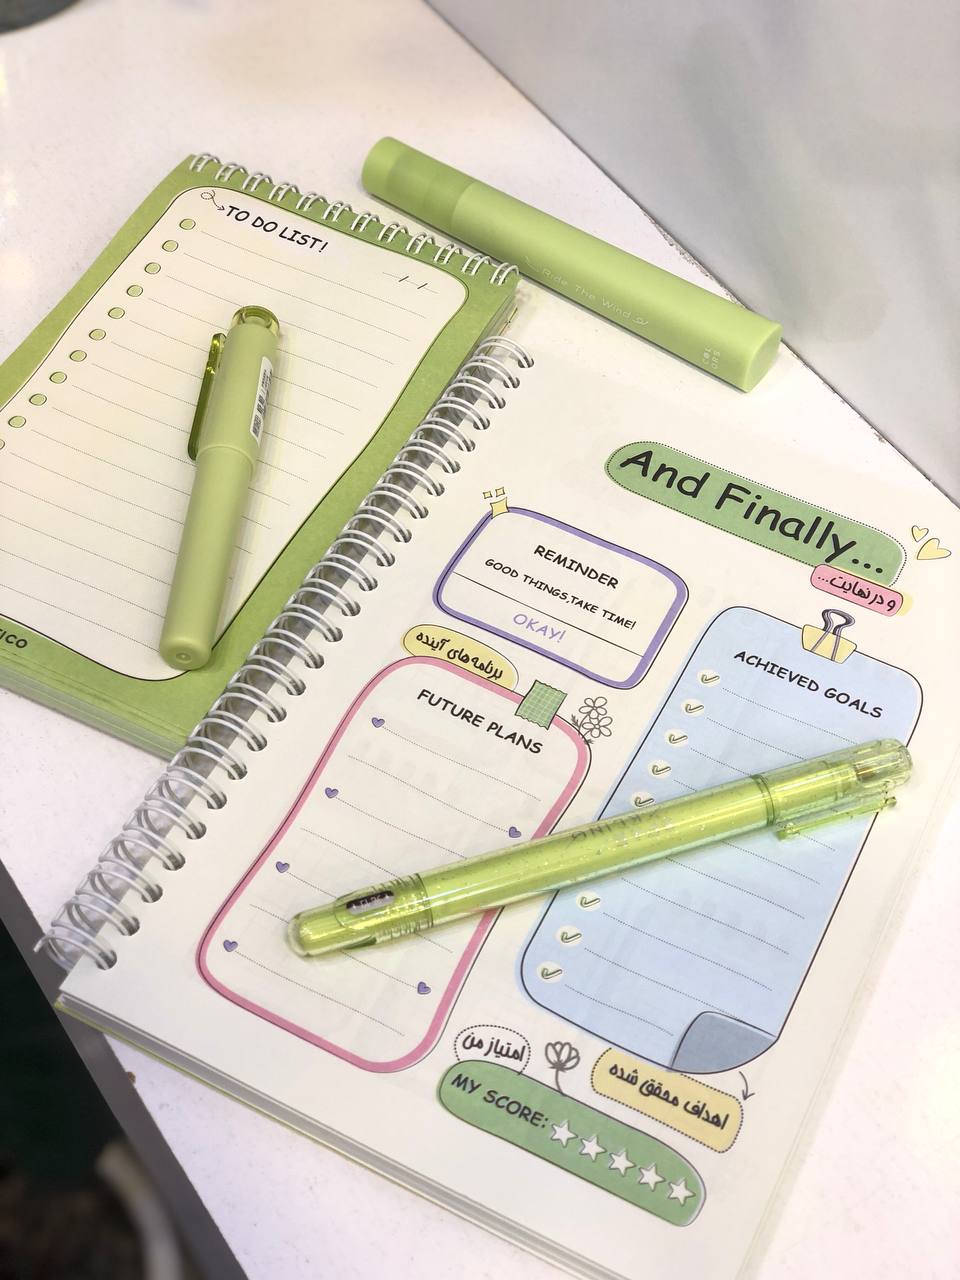 TO DO LIST!
Ride The Wind
COLORS
And Finally...
و در نهایت...
REMINDER
GOOD THINGS,TAKE TIME!
OKAY!
برنامه‌های آینده
FUTURE PLANS
ACHIEVED GOALS
امتیاز من
اهداف محقق شده
MY SCORE: